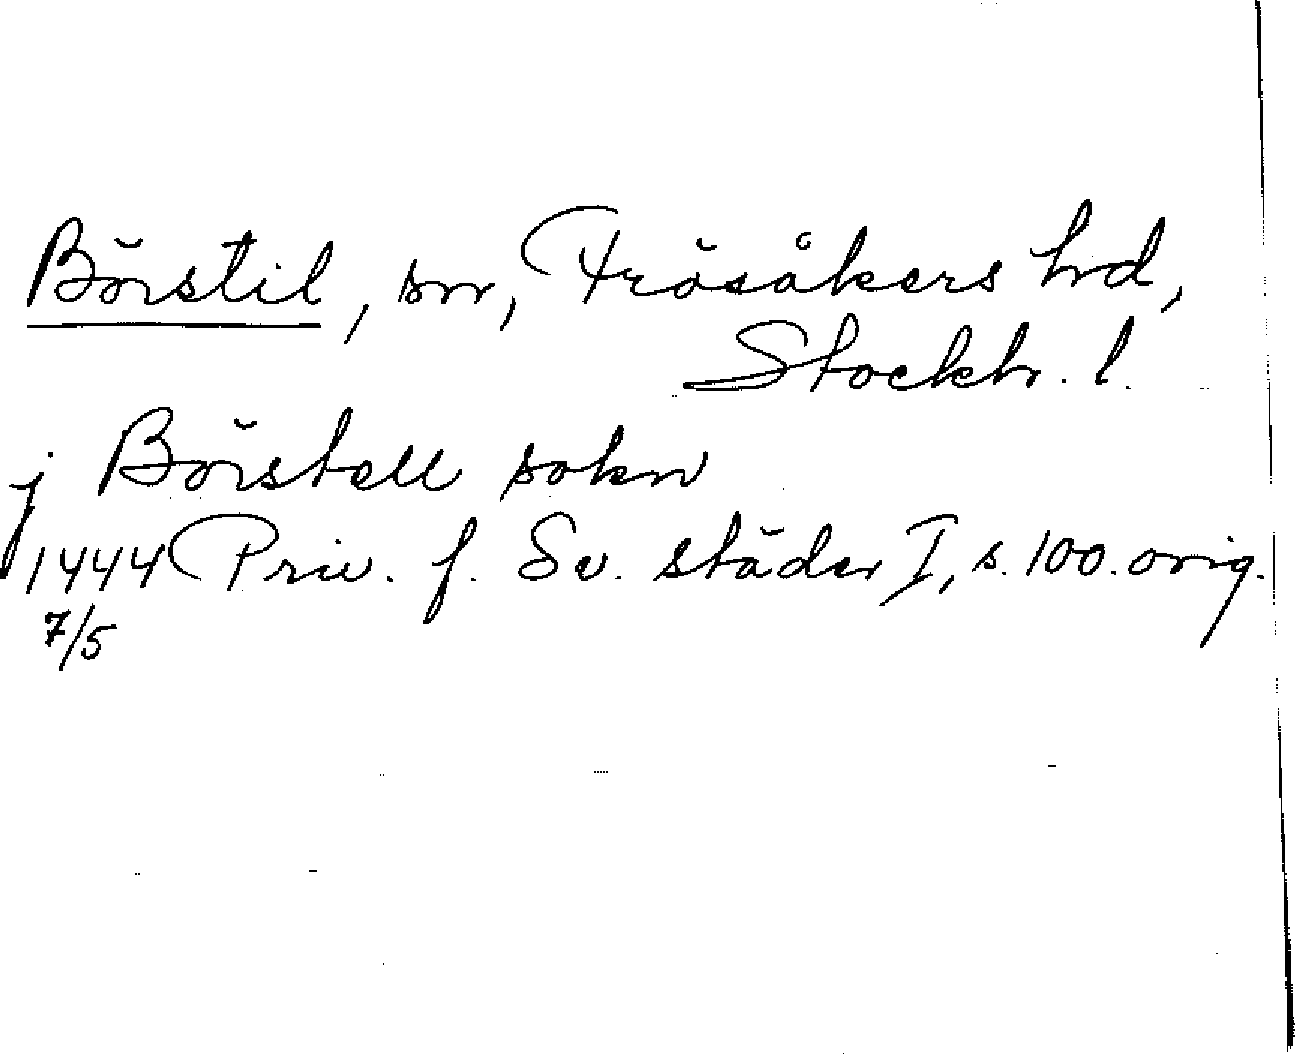 Börstil, sn, Frösåkers hd,
Stockh. l.
j Börstall sokn
1444 Priv. f. Sv. städer I, s. 100. orig.
7/5